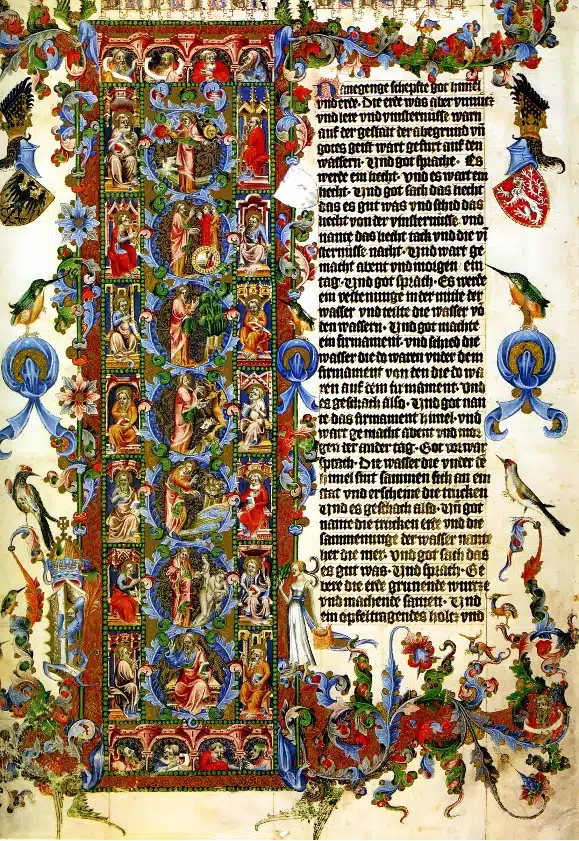 N anegenge schepfte got himel
vnd erde. Die erde was aber vnnucz
vnd lere vnd vinsternisse warn
auf der gestalt der abegrund vn̄
gotes geist wart gefurt auf den
wassern. Vnd got sprache. Es
werde ein liecht. Vnd es wart ein
liecht. Vnd got sach das liecht
das es gut was vnd schid das
liecht von der vinsternisse. vnd
nante das liecht tack vnd die vī
sternisse nacht. Vnd wart ge
macht abent vnd morgen ein
tag. Vnd got sprach. Es werde
ein vestenunge in der mitte der
wasser vnd teilte die wasser vō
den wassern. Vnd got machte
ein firmament. vnd schied die
wasser die do waren vnder dem
firmament von den die do wa
ren auf dem firmament. Vnd
es geschach also. Vnd got nan
te das firmament himel. vnd
wart gemacht abent vnd mor
gen der ander tag. Got vorwar
sprach. Die wasser die vnder dē
himel sint sammen sich an ein
stat vnd erscheine die trucken
Vnd es geschach also. Vn̄ got
nante die trucken erde vnd die
sammenunge der wasser nante
her die mer. Vnd got sach das
es gut was. Vnd sprach. Ge
bere die erde grunende wurcze
vnd machende samen. Vnd
ein opfeltragendes holcz vnd